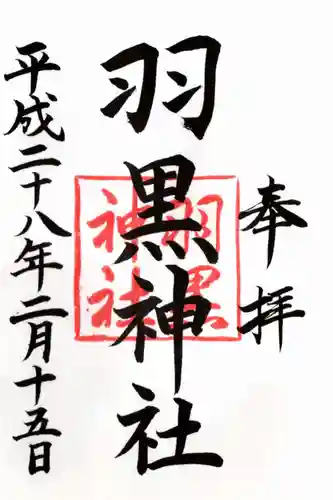 奉拝
羽黒神社
羽黒神社
平成二十八年二月十五日